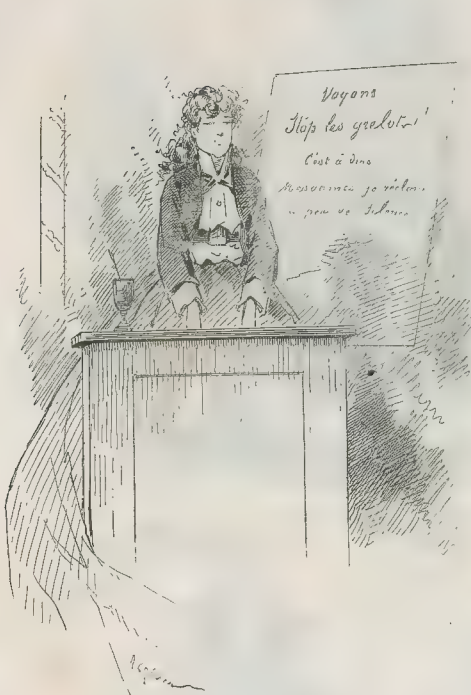 Voyons
Stop les grelots!
C'est à dire
Mesdames je réclame
un peu de silence